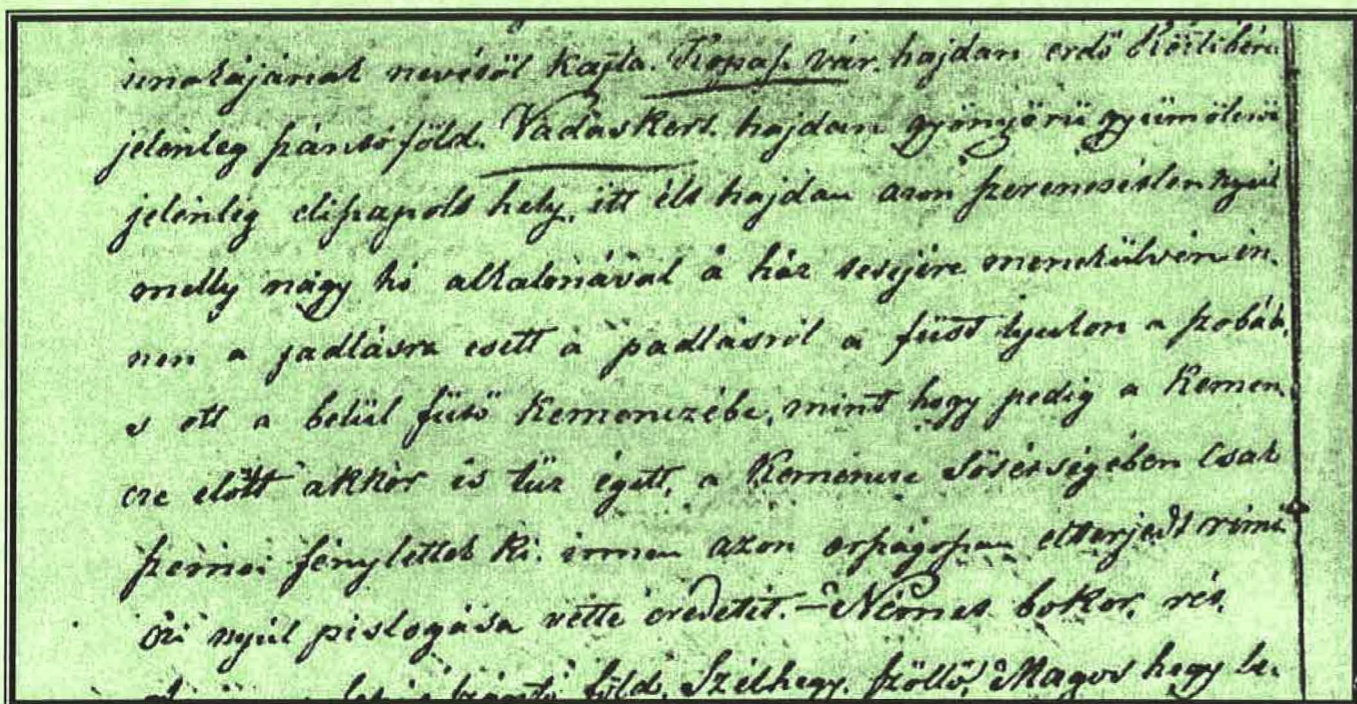 unokájának nevéről Kajta. Kopasz vár. hajdan erdő
jelenleg szántó föld. Vadaskert. hajdan gyönyörü gyümölcsö
jelenleg eliszapolt hely, itt élt hajdan azon szerencsétlen nyúl
melly nagy hó alkalmával a ház tetejére menekülvén in,
nen a padlásra esett a padlásról a füst lyukon a szobáb,
s ott a belül fütő Kemenczébe, mint hogy pedig a Kemen,
cze előtt akkor is tüz égett, a Kemencze Sötétségében Csak
szemei fénylettek ki. innen azon országoszan elterjedt
nyúl pislogása vette eredetit. – Német bokor, rét,
föld, Szélhegy, szöllő, Magos hegy le,